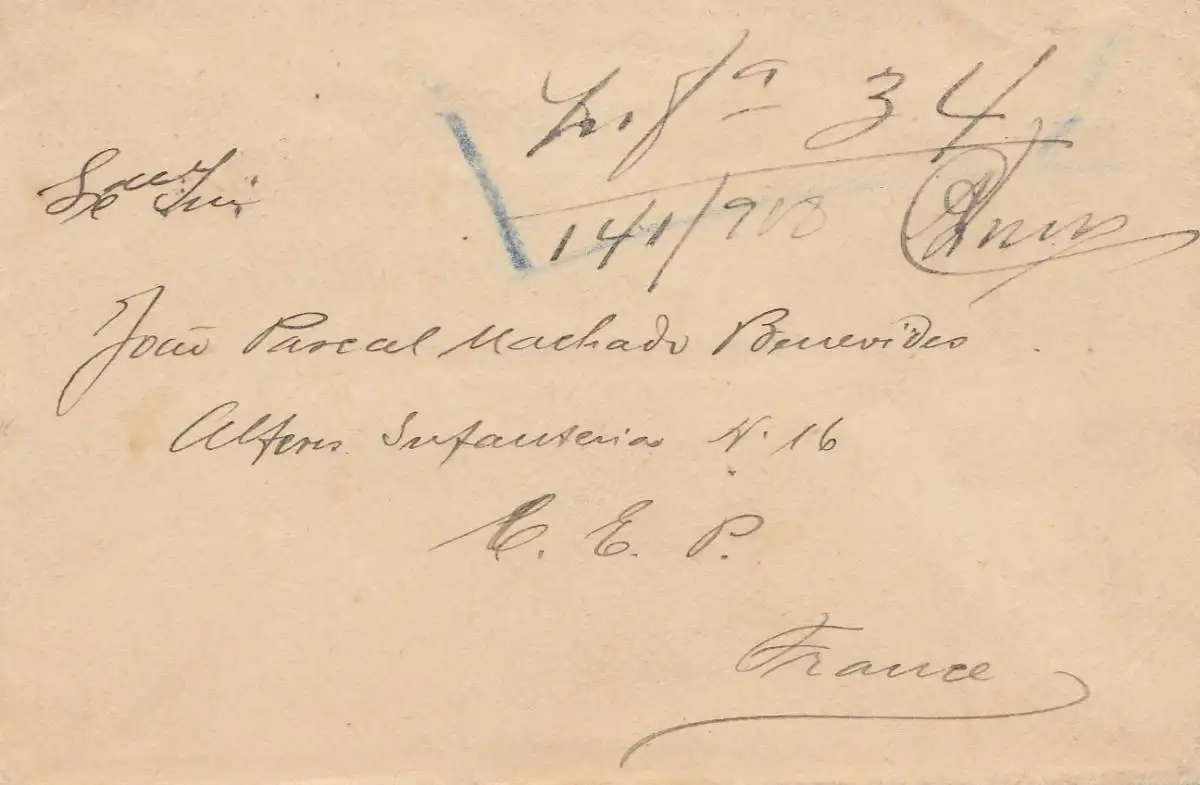 34
14/1/918
João Pascal Machado Benevides
Alferes Infanteria N. 16
C. E. P.
France